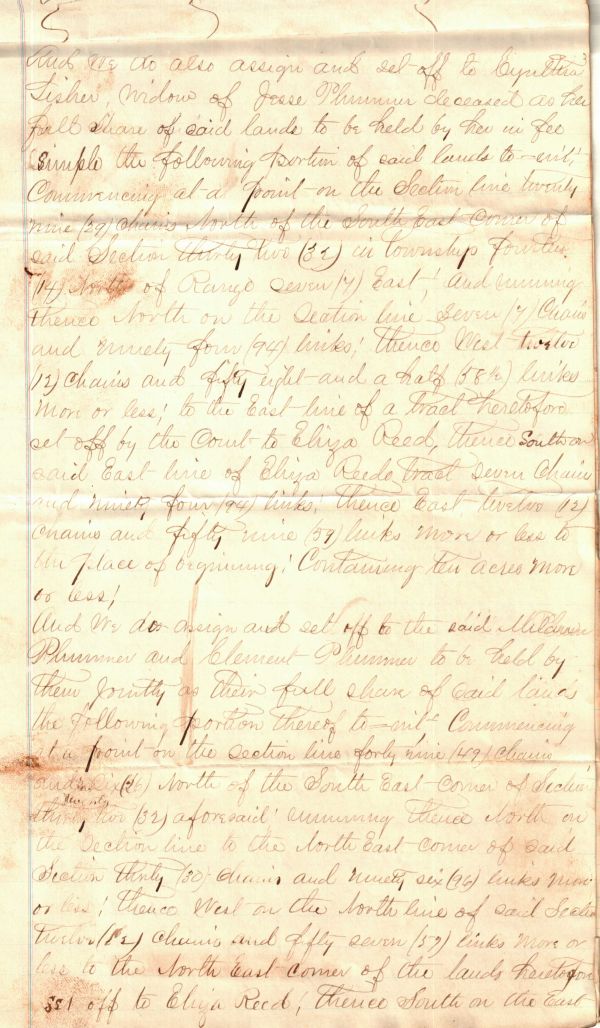 And We do also assign and set off to Cynthia
Fisher, Widow of Jesse Plummer deceased as her
full share of said lands to be held by her in fee
simple the following portion of said lands to-wit;
Commencing at a point on the Section line twenty
nine (29) chains North of the South East Corner of
said Section thirty two (32) in township fourteen
(14) North of Range seven (7) East; And running
thence North on the Section line Seven (7) Chains
and ninety four (94) links; thence West twelve
(12) Chains and fifty eight and a half (58½) links
More or less; to the East line of a Tract heretofore
set off by the Court to Eliza Reed, thence South on
said East line of Eliza Reeds Tract seven Chains
and ninety four (94) links; thence East twelve (12)
chains and fifty nine (59) links More or less to
the place of beginning; Containing ten acres More
or less;
And We do assign and set off to the said
Plummer and Clement Plummer to be held by
them Jointly as their full share of said lands
the following portion thereof to-wit Commencing
at a point on the section line forty nine (49) chains
and Six North of the South East Corner of Section
thirty two (32) aforesaid; running thence North on
the Section line to the North East corner of said
Section thirty (30) chains and ninety six (96) links More
or less; thence West on the North line of said Section
twelve (12) chains and fifty seven (57) links More or
less to the North East corner of the lands heretofore
set off to Eliza Reed; thence South on the East